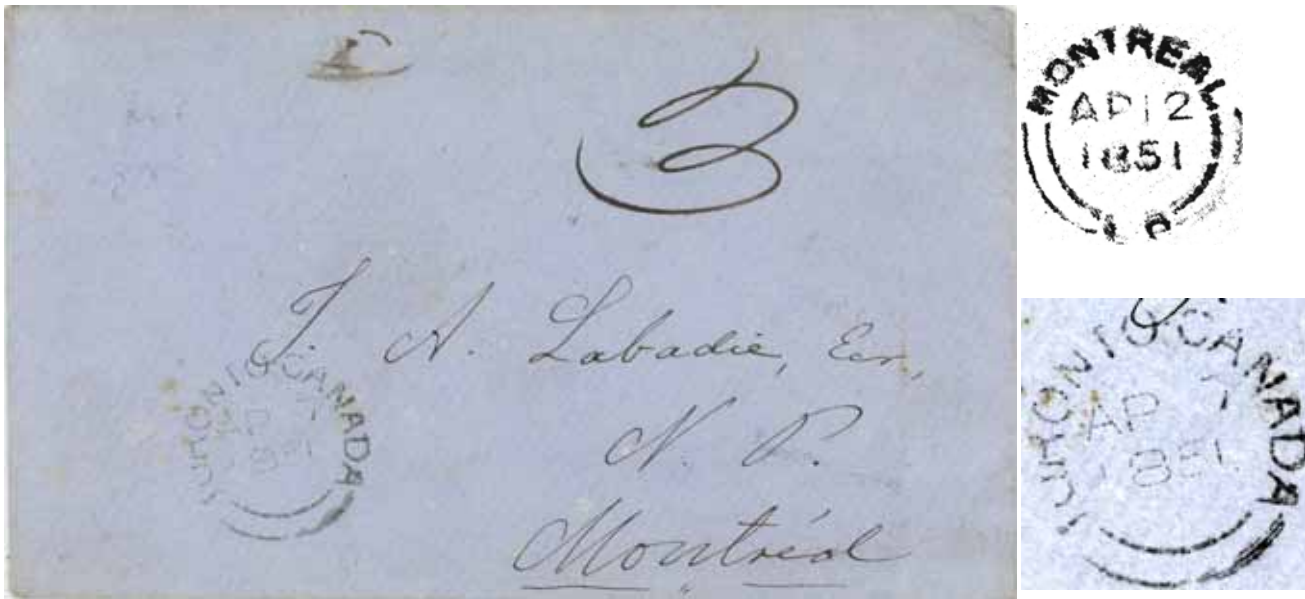 3
J. A. Labadie, Ecr,
N. P.
Montréal
TORONTO CANADA
AP 7
1851
MONTREAL
AP 12
1851
TORONTO CANADA
AP 7
1851